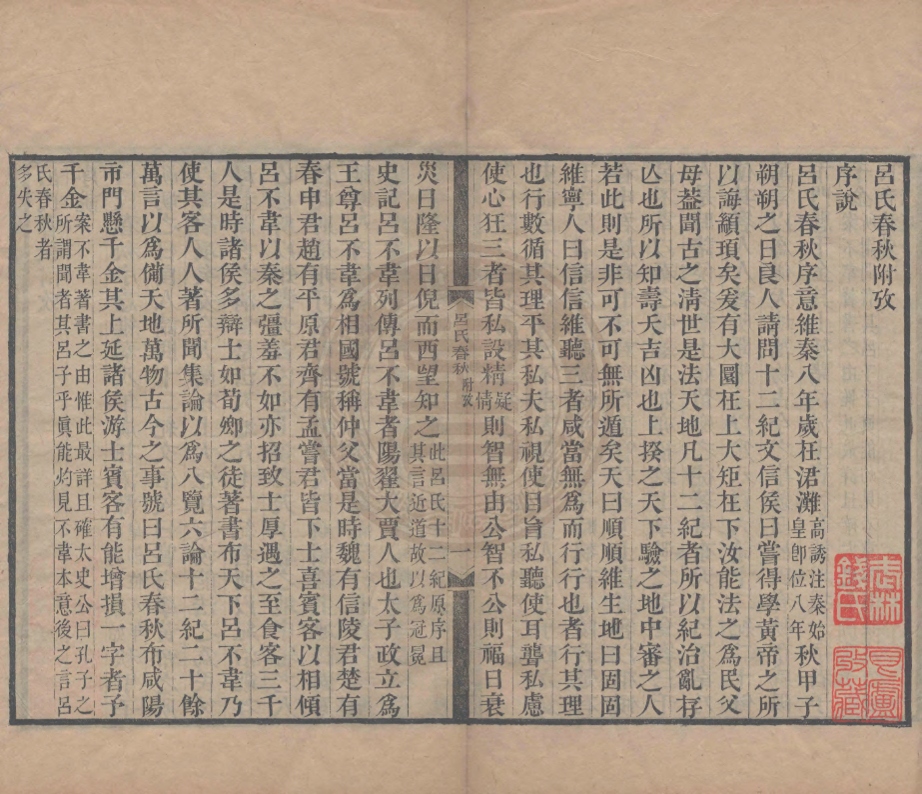 呂氏春秋附攷
序說
呂氏春秋序意維秦八年歲在涒灘高誘注秦始皇即位八年秋甲子
朔朔之日良人請問十二紀文信侯曰嘗得學黃帝之所
以誨顓頊矣爰有大圜在上大矩在下汝能法之為民父
母蓋聞古之清世是法天地凡十二紀者所以紀治亂存
亾也所以知壽夭吉凶也上揆之天下驗之地中審之人
若此則是非可不可無所遁矣天曰順順維生地曰固固
維寧人曰信信維聽三者咸當無為而行行也者行其理
也行數循其理平其私夫私視使目盲私聽使耳聾私慮
使心狂三者皆私設精疑情則智無由公智不公則福日衰
呂氏春秋 附攷 一
災日隆以日倪而西望知之此呂氏十二紀原序且其言近道故以為冠冕
史記呂不韋列傳呂不韋者陽翟大賈人也太子政立為
王尊呂不韋為相國號稱仲父當是時魏有信陵君楚有
春申君趙有平原君齊有孟嘗君皆下士喜賓客以相傾
呂不韋以秦之彊羞不如亦招致士厚遇之至食客三千
人是時諸侯多辯士如荀卿之徒著書布天下呂不韋乃
使其客人人著所聞集論以為八覽六論十二紀二十餘
萬言以為備天地萬物古今之事號曰呂氏春秋布咸陽
市門懸千金其上延諸侯游士賓客有能增損一字者予
千金案不韋著書之由惟此最詳且確太史公曰孔子之所謂聞者其呂子乎眞能灼見不韋本意後之言呂
氏春秋者多失之
武林錢氏